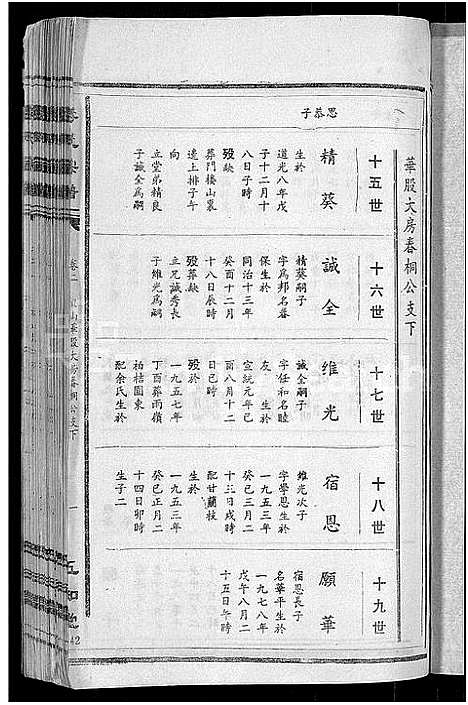 華股大房春桐公支下
十五世
思恭子
精葵
生於
道光八年戊
子十二月十
八日子時
歿缺
葬門樓山裏
邊上排子午
向
立堂弟精良
子誠全為嗣
十六世
誠全
精葵嗣子
字爲邦名春
保生於
同治十三年
癸酉十二月
十八日辰時
歿葬缺
立兄誠秀長
子維光爲嗣
十七世
维光
誠全嗣子
字任和名睦
友 生於
宣統元年己
酉八月十二
日巳時
歿於
一九五七年
丁酉葬雨嶺
柏桔園東
配余氏生於
十八世
宿恩
維光次子
字學恩生於
一九五三年
癸巳三月二
十三日戌時
配甘蘭枝
生於
一九五三年
癸巳正月二
十四日卯時
生子二
十九世
願華
宿恩長子
名華平生於
一九七八年
戊午八月二
十五日午時
卷二
華股大房春桐公支下
一
42